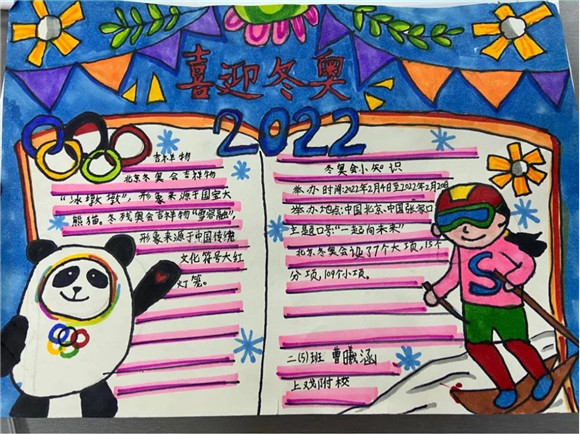 喜迎冬奥
2022
吉祥物
北京冬奥会吉祥物
“冰墩墩”,形象来源于国宝大
熊猫。冬残奥会吉祥物“雪容融”,
形象来源于中国传统
文化符号大红
灯笼。
冬奥会小知识
举办时间:2022年2月4日至2022年2月20日
举办地点:中国北京、中国张家口
主题口号:“一起向未来”
北京冬奥会设7个大项,15个
分项,109个小项。
二(5)班 曹曦涵
上戏附校
S